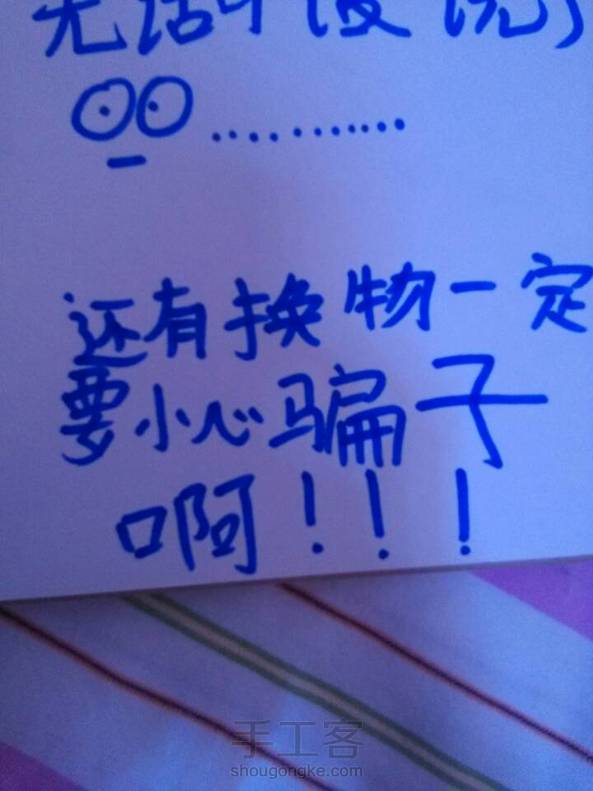 无话可说了
............
还有换物一定
要小心骗子
啊!!!
手工客
shougongke.com